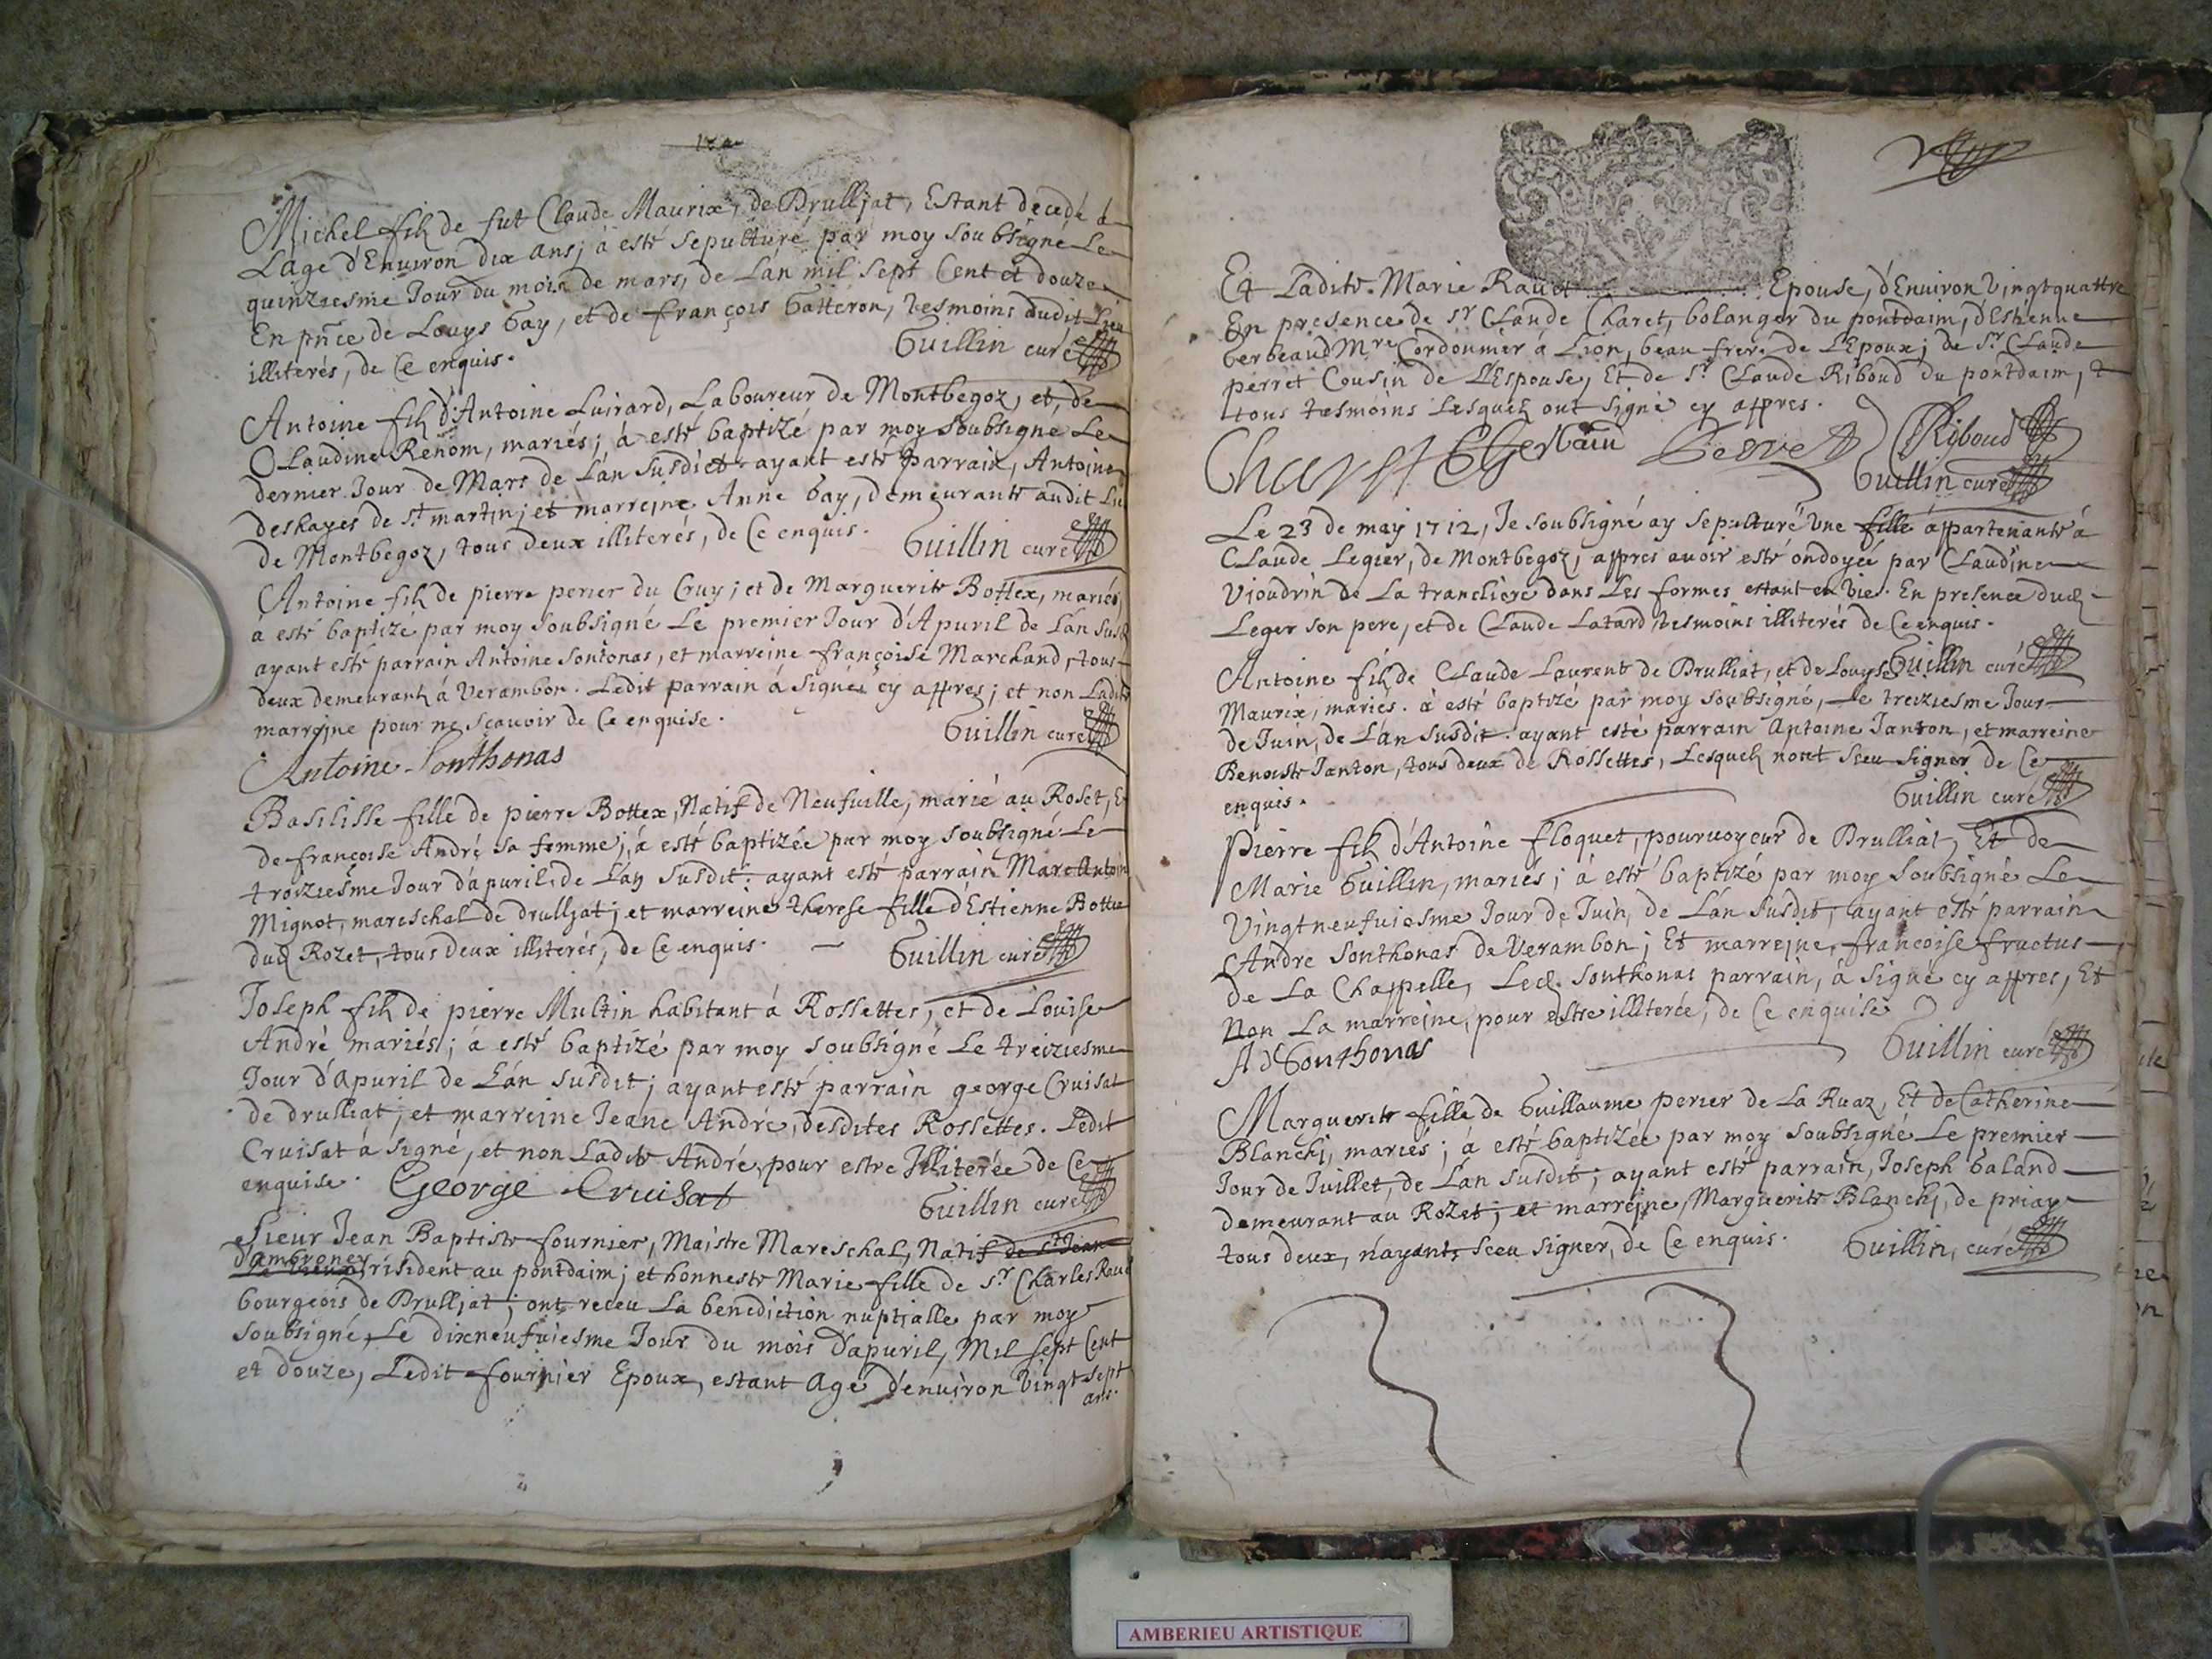 Michel fils de fut Claude Maurix, de Brulliat, Estant decedé à
Lâge d'Enuiron dix ans; à esté sepulturé par moy soubsigné Le
quinziesme Jour du mois de mars, de Lán mil sept Cent et douze
En pñce de Louys Gay, et de françois Gatteron, tesmoins dudit Lieu
illiterés, de Ce enquis.
Guillin curé
Antoine fils d'Antoine Luirard, Laboureur de Montbegoz, et, de
Claudine Renom, mariés; à esté baptizé par moy soubsigné Le
dernier Jour de Mars de Lán susdict ayant esté parrain, Antoine
deshayes de St martin; et marreine Anne Gay, demeurants audit Lieu
de Montbegoz, tous deux illiterés, de Ce enquis.
Guillin curé
Antoine fils de pierre perier du Cruy; et de Marguerite Bottex, mariés,
à esté baptizé par moy soubsigné Le premier Jour d'Apuril de Lán susd
ayant esté parrain Antoine Sontonas, et marreine françoise Marchand, tous
deux demeurants à Verambon. Ledit parrain à signé cy appres; et non Ladite
marreine pour ne sçauoir de Ce enquise.
Guillin curé
Antoine Sonthonas
Basilisse fille de pierre Bottex, Natif de Neufuille, marié au Roset, Et
de françoise André sa femme; à esté baptizée par moy soubsigné Le
troiziesme Jour d'apuril, de Lán susdit; ayant esté parrain Marc Antoine
Mignot, mareschal de drulliat; et marreine therese fille d'Estienne Bottex
dud Rozet, tous deux illiterés, de Ce enquis.
Guillin curé
Joseph fils de pierre Multin habitant à Rossettes, et de Louise
André mariés; à esté baptizé par moy soubsigné Le treiziesme
Jour d'Apuril de Lán susdit; ayant esté parrain george Cruisat
de drulliat; et marreine Jeane André, desdites Rossettes. Ledit
Cruisat à signé, et non Ladite André, pour estre Illiterée de Ce
enquise.
George Cruisat
Guillin curé
Sieur Jean Baptiste fournier, Maistre Mareschal, Natif de St Jean
d'ambroney
résident au pontdaim; et honneste Marie fille de Sr Charles Rauet
bourgeois de Brulliat; ont receu La benediction nuptialle par moy
soubsigné, Le dixneufuiesme Jour du mois d'apuril, Mil sept Cent
et douze, Ledit fournier Epoux, estant Agé d'enuiron Vingt sept
ans.
Et Ladite Marie Rauet Epouse, d'Enuiron Vingtquattre
En presence de Sr Claude Charet, bolanger du pontdaim, d'Estienne
berbeaud Mre Cordonnier à Lion, beau frere de L'Epoux; de Sr Claude
perret Cousin de L'Espouse, Et de Sr Claude Riboud du pontdaim,
tous tesmoins Lesquels ont signé cy appres.
Charet
Riboud
Guillin curé
Le 23 de may 1712, Je soubsigné ay sepulturé vne fille appartenante à
Claude Legier, de Montbegoz, appres auoir esté ondoyée par Claudine
Vioudrin de La tranclière dans Les formes estant en Vie. En presence dud
Leger son pere, et de Claude Latard tesmoins illiterés de Ce enquis.
Guillin curé
Antoine fils de Claude Laurent de Brulliat, et de Louyse
Maurix, mariés. à esté baptizé par moy soubsigné, Le treiziesme Jour
de Juin, de Lán susdit. ayant esté parrain Antoine Janton, et marreine
Benoiste Janton, tous deux de Rossettes, Lesquels nont sceu signer de Ce
enquis.
Guillin curé
Pierre fils d'Antoine floquet, pouruoyeur de Brulliat, Et de
Marie Guillin, mariés; à esté baptizé par moy soubsigné Le
Vingtneufuiesme Jour de Juin, de Lán susdit, ayant esté parrain
Andre Sonthonas de Verambon; Et marreine, françoise fructus
de La Chappelle, Led. Sonthonas parrain, à signé cy appres, Et
Non La marreine, pour estre illiterée, de Ce enquise
Guillin curé
Ad Sonthonas
Marguerite fille de Guillaume perier de La Ruaz, Et de Catherine
Blanchj, mariés; à esté baptizée par moy soubsigné Le premier
Jour de Juillet, de Lán susdit; ayant esté parrain, Joseph Galand
demeurant au Rozet; et marreine, Marguerite Blanchj, de priay
tous deux, n'ayants sceu signer, de Ce enquis.
Guillin, curé
AMBERIEU ARTISTIQUE